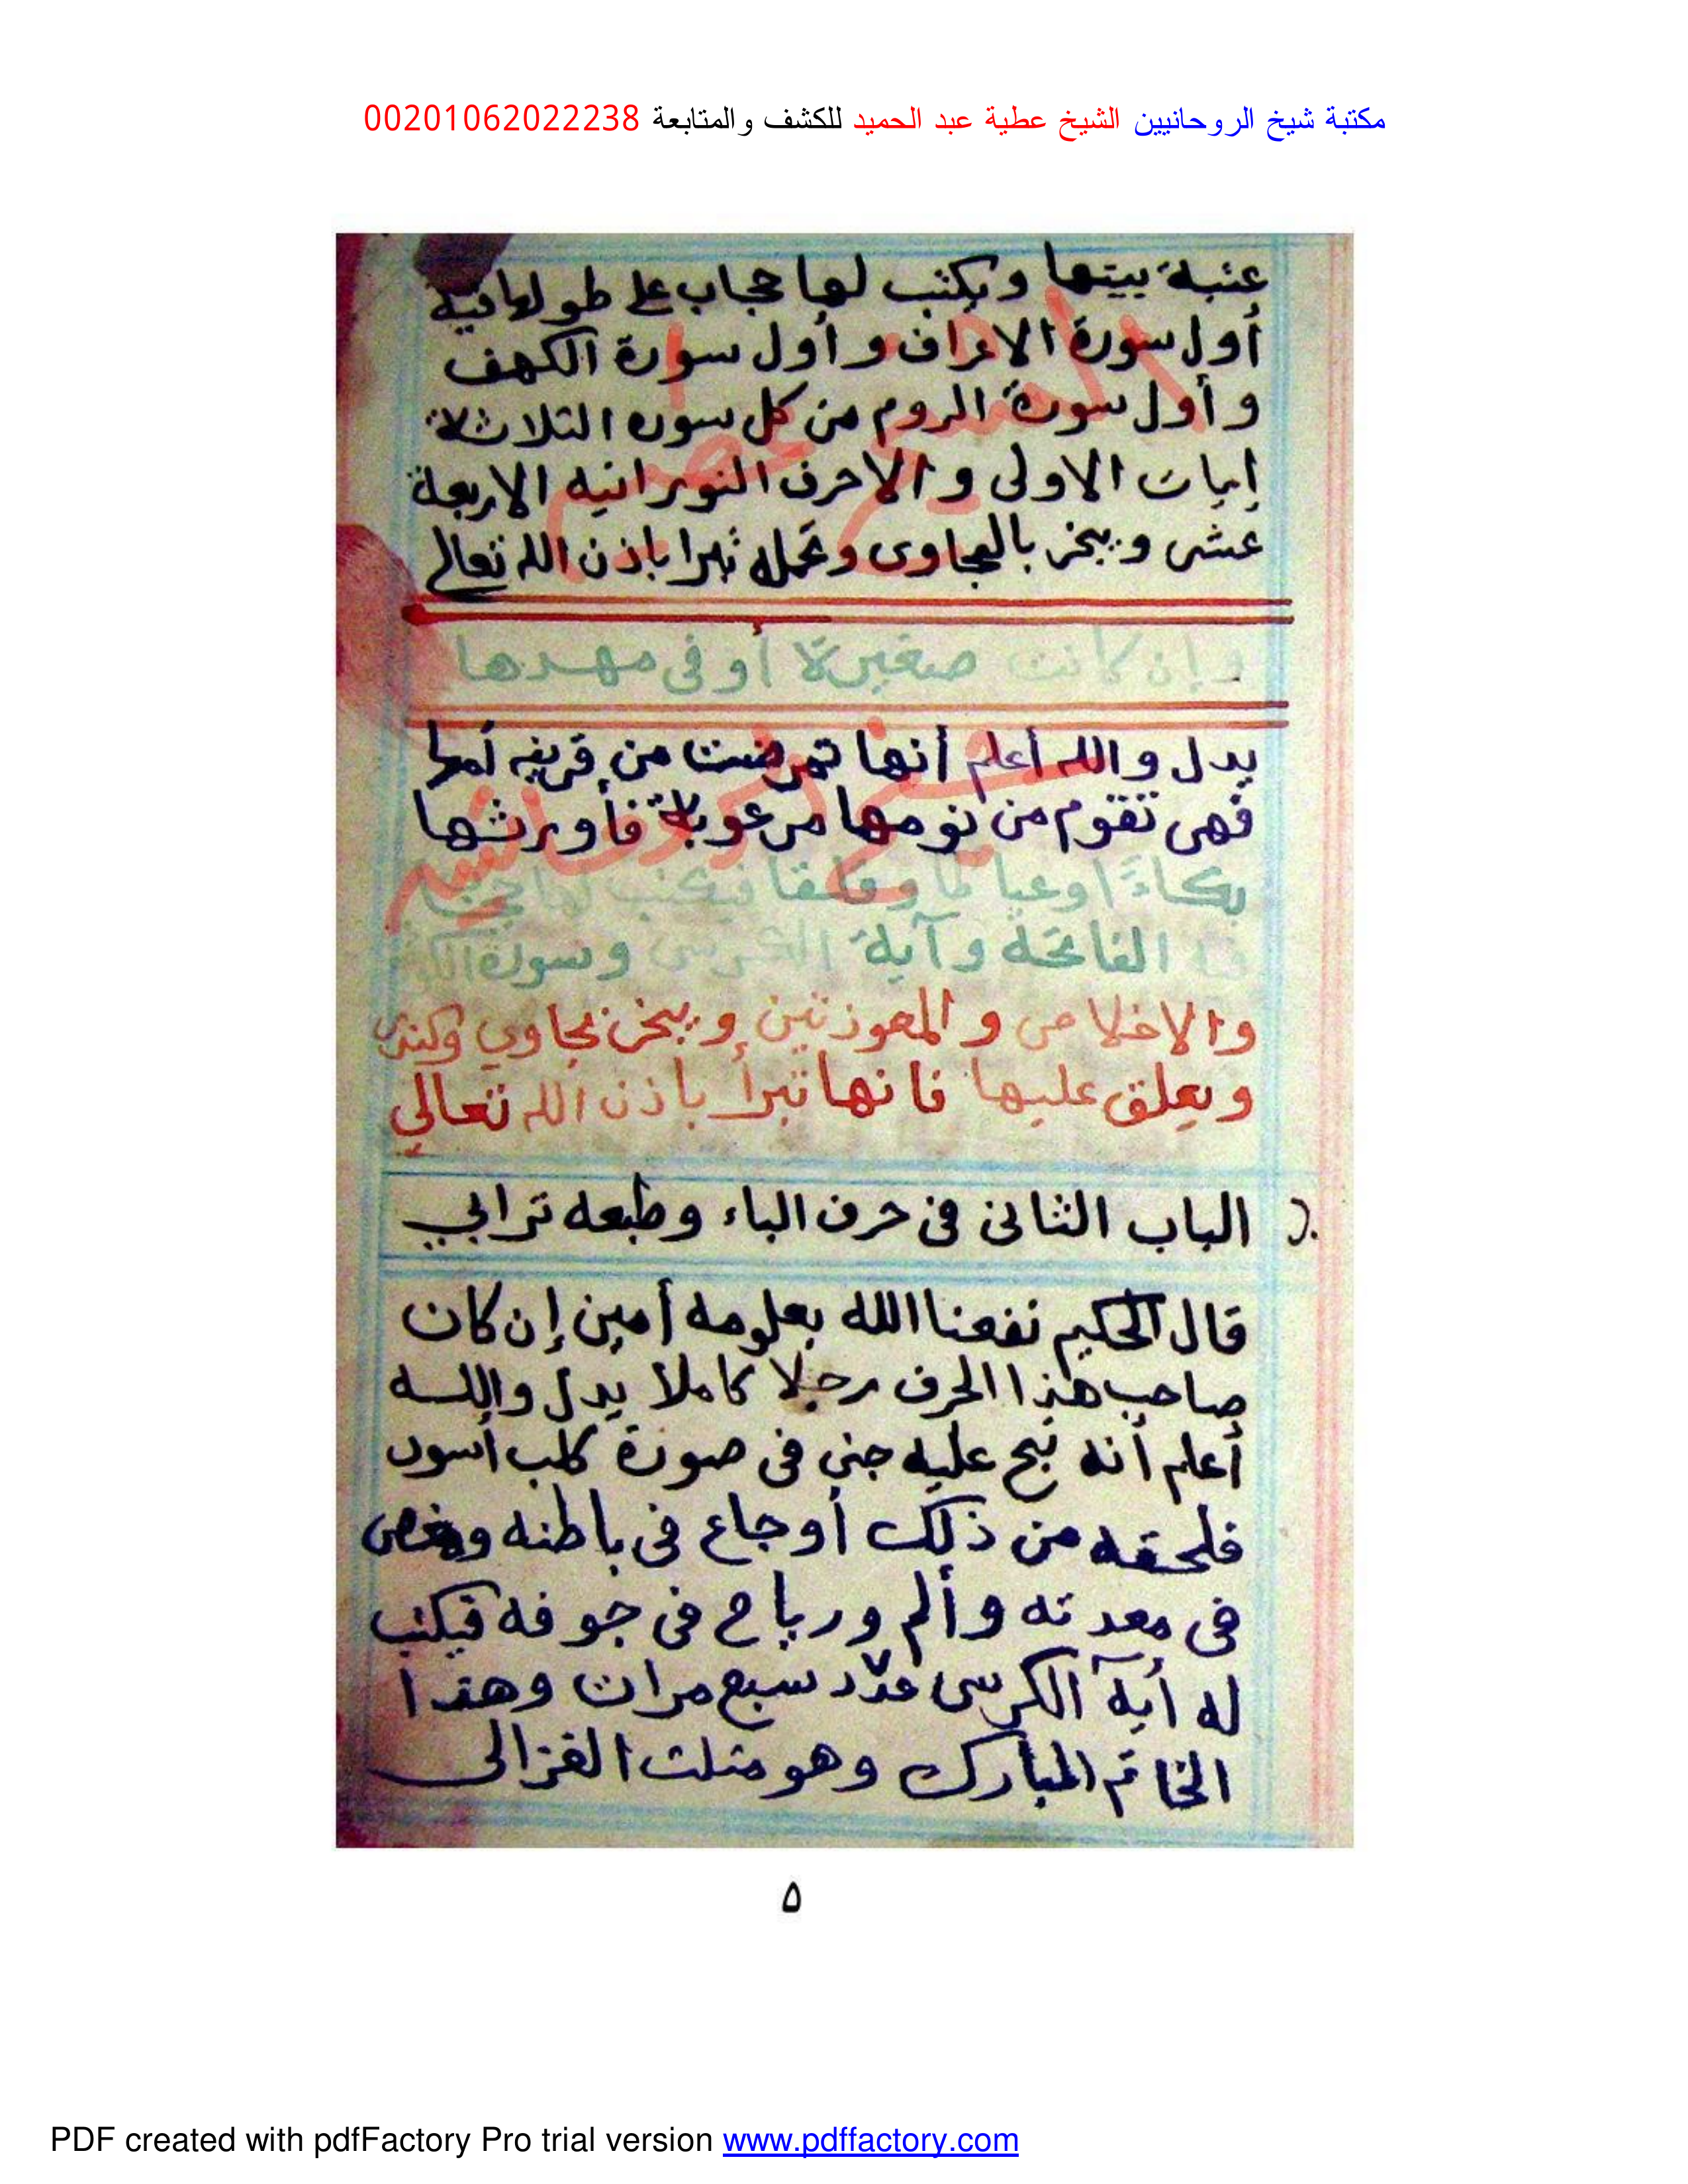 مكتبة شيخ الروحانيين الشيخ عطية عبد الحميد للكشف والمتابعة 00201062022238
عتبة بيتها ويكتب لها حجاب على طولها فيه
أول سورة الاعراف و أول سورة الكهف
و أول سورة الروم من كل سوره الثلاثة
إيات الاولى و الاحرف النورانيه الاربعة
عشر ويبخر بالجاوى وتحمله تبرا باذن الله تعالى
وإن كانت صغيرة أو فى مهدها
يدل والله أعلم أنها تمرضت من قرينه أمها
فهى تقوم من نومها مرعوبة فأورثها
بكاءً وعياطا وقلقا فيكتب لها
فيه الفاتحة و آية الكرسى وسورة
والاخلاص و المعوذتين ويبخر بجاوي
ويعلق عليها فانها تبرأ باذن الله تعالي
الباب الثانى فى حرف الباء وطبعه ترابي
قال الحكيم نفعنا الله بعلومه أمين إن كان
صاحب هذا الحرف رجلا كاملا يدل والله
أعلم أنه نبح عليه جنى فى صورة كلب أسود
فلحقه من ذلك أوجاع فى باطنه ومغص
فى معدته وألم ورياح فى جوفه فيكتب
له أية الكرسى عدد سبع مرات وهذا
الخاتم المبارك وهو مثلث الغزالى
٥
PDF created with pdfFactory Pro trial version www.pdffactory.com